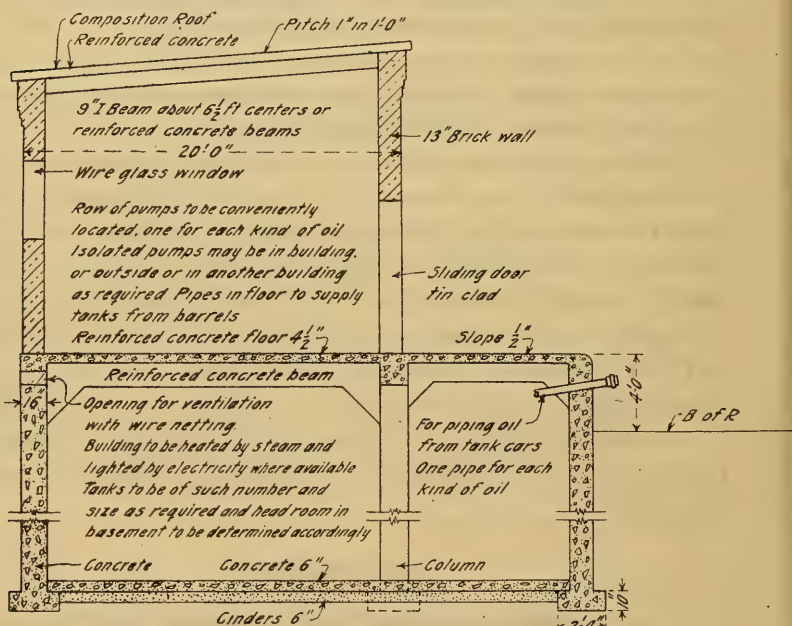 Composition Roof
Reinforced concrete
Pitch 1" in 1'-0"
9" I Beam about 6 1/2 ft centers or
reinforced concrete beams
20'-0"
13" Brick wall
Wire glass window
Row of pumps to be conveniently
located, one for each kind of oil
Isolated pumps may be in building,
or outside or in another building
as required Pipes in floor to supply
tanks from barrels
Reinforced concrete floor 4 1/2"
Sliding door
tin clad
Slope 1/2"
Reinforced concrete beam
4'-0"
16"
Opening for ventilation
with wire netting.
Building to be heated by steam and
lighted by electricity where available
Tanks to be of such number and
size as required and head room in
basement to be determined accordingly
For piping oil
from tank cars
One pipe for each
kind of oil
B of R
Concrete
Concrete 6"
Column
Cinders 6"
10"
2'-0"